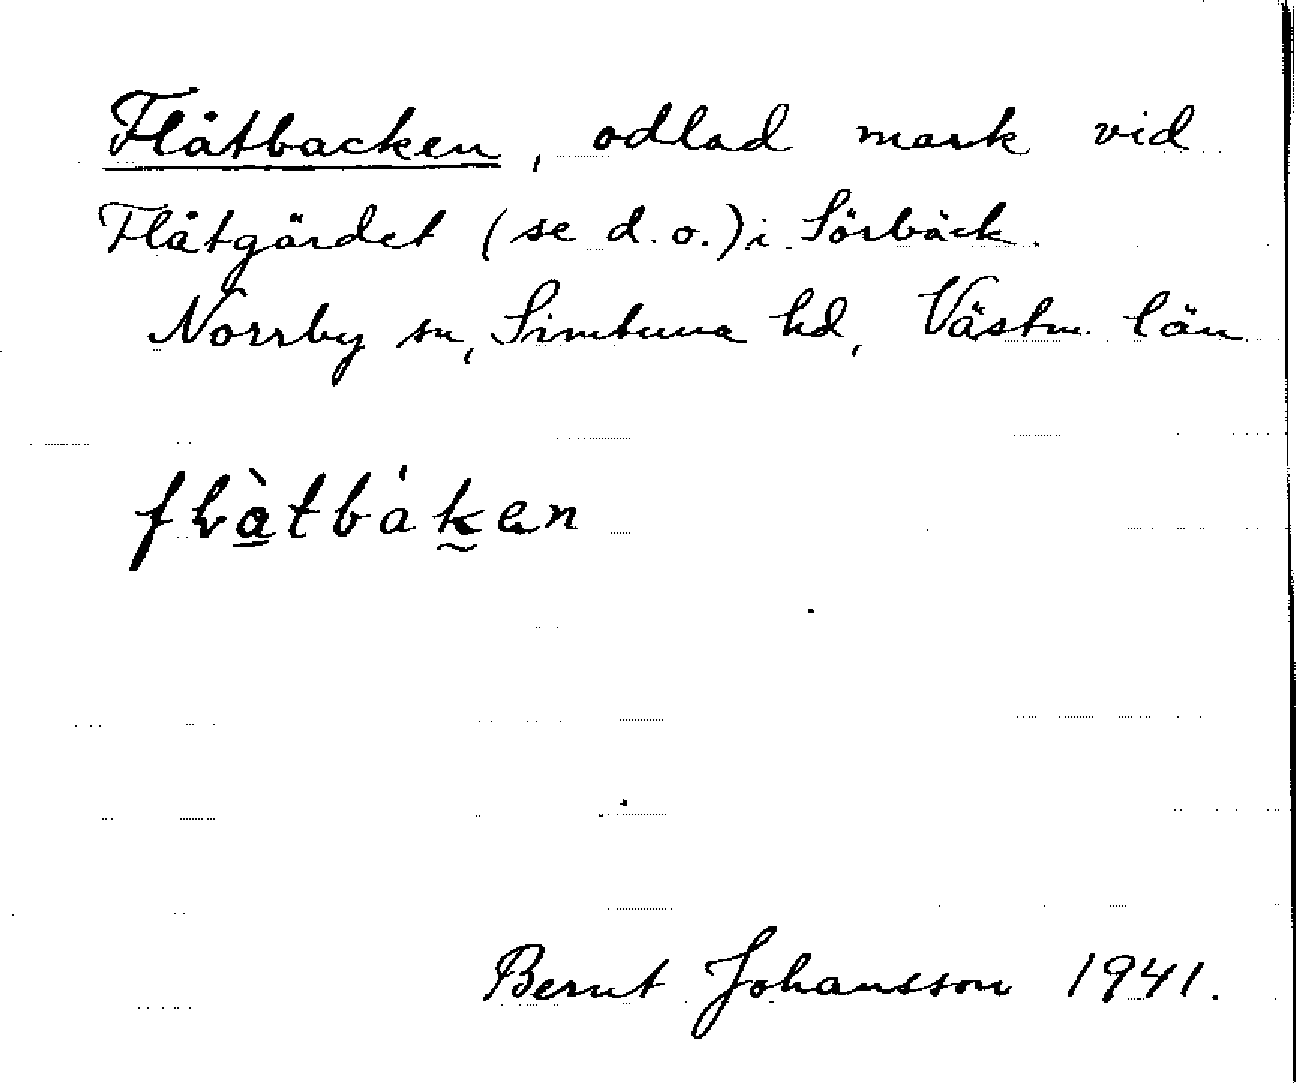 Flåtbacken, odlad mark vid
Flåtgärdet (se d.o.) i Sörbäck
Norrby sn, Simtuna hd, Västm. län
Bernt Johansson 1941.